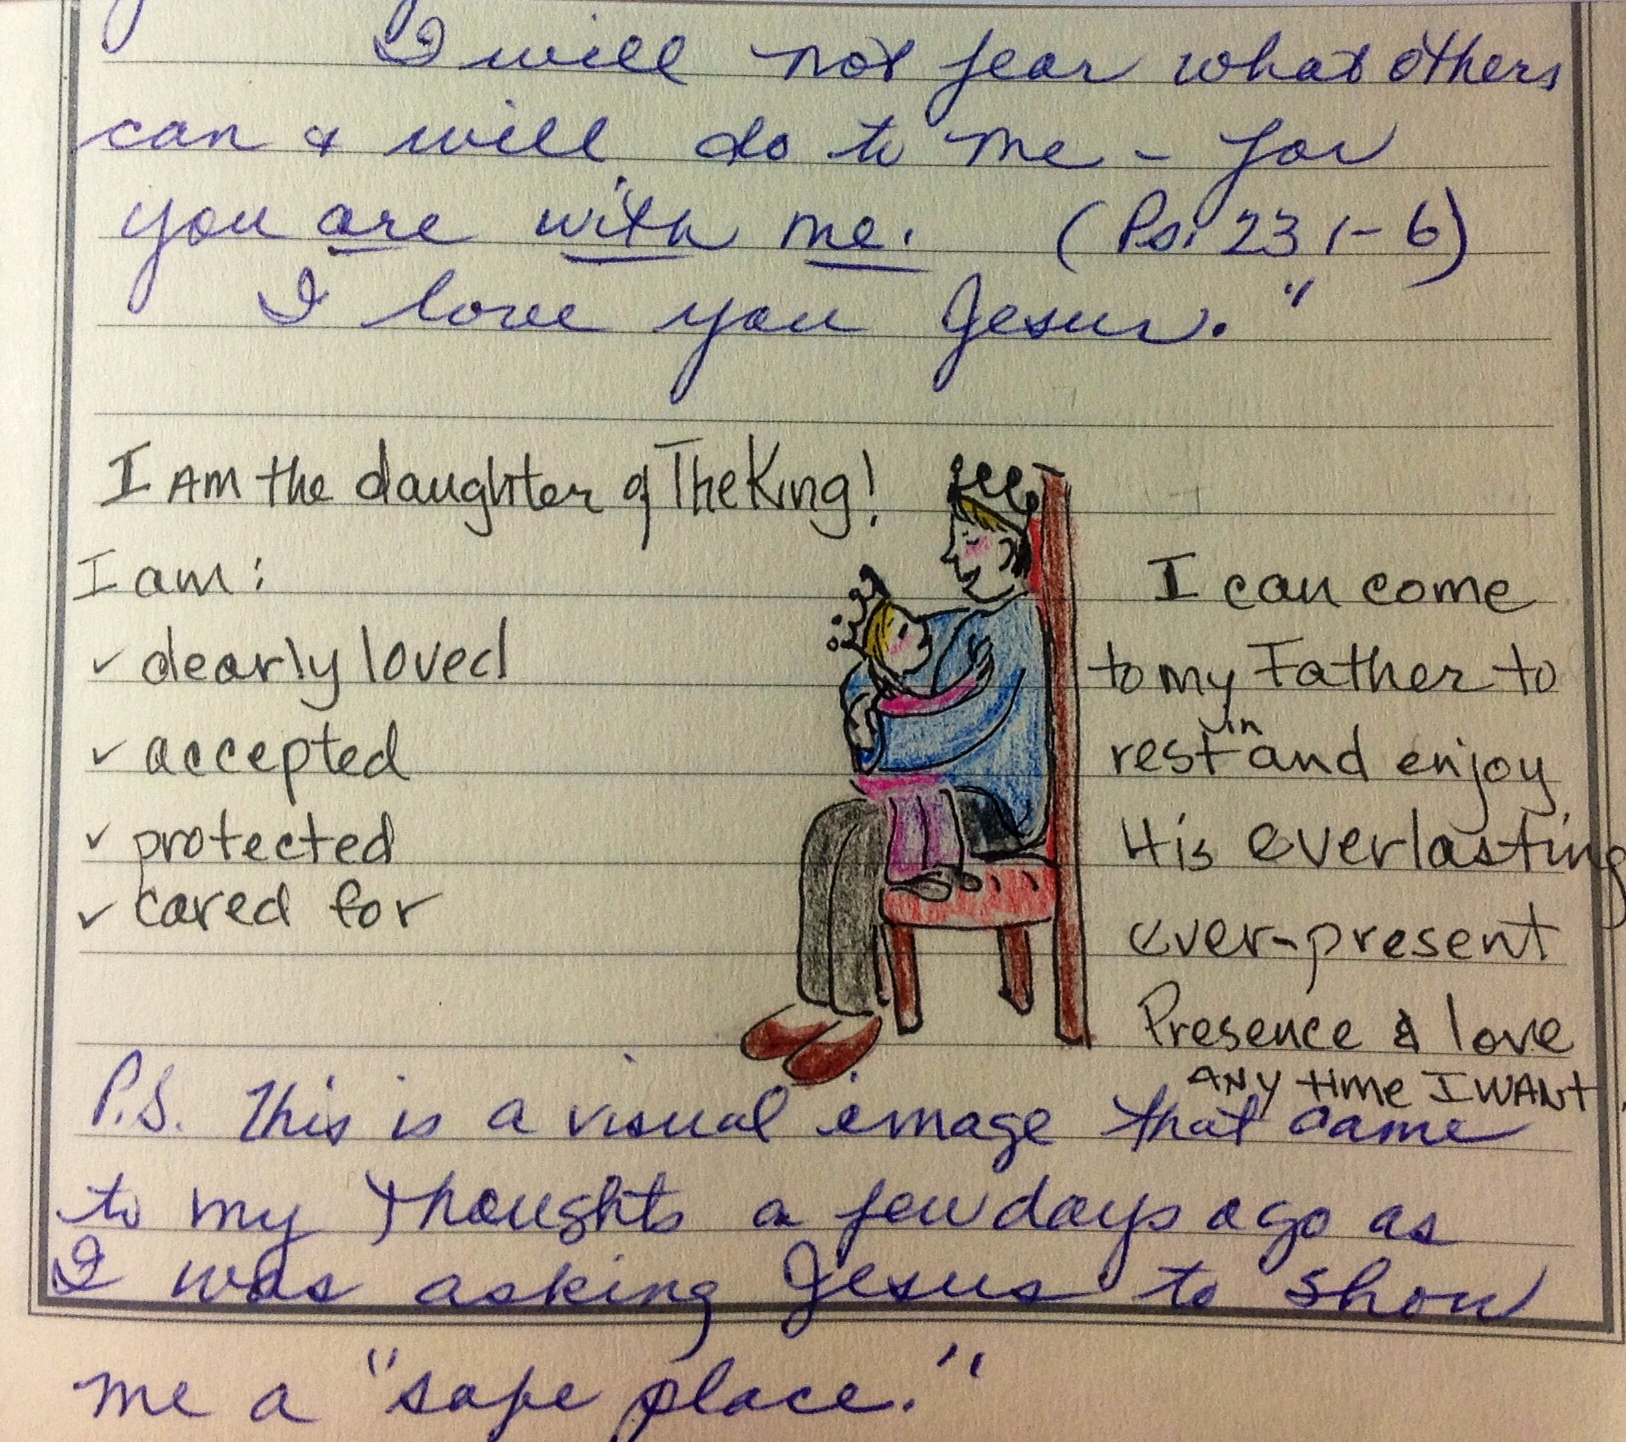 I will not fear what others
can & will do to me - for
you are with me. (Ps. 23 1-6)
I love you Jesus."
I AM the daughter of The King!
I am:
✓ dearly loved
✓ accepted
✓ protected
✓ cared for
I can come
to my Father to
rest in and enjoy
His everlasting
ever-present
Presence & love
ANY time I WANT.
P.S. This is a visual image that came
to my thoughts a few days ago as
I was asking Jesus to show
me a "safe place."